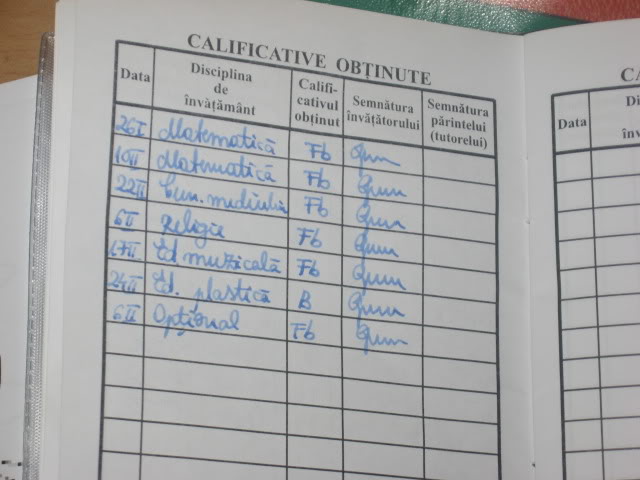 CALIFICATIVE OBȚINUTE
Data Disciplina de învățământ Califi-cativul obținut Semnătura învățătorului Semnătura părintelui (tutorelui)
26 I Matematică Fb
10 II Matematică Fb
22 II Cun. mediului Fb
6 I Religie Fb
17 II Ed muzicală Fb
24 II Ed. plastică B
6 II Opțional Fb
CA
Data
Di
învă